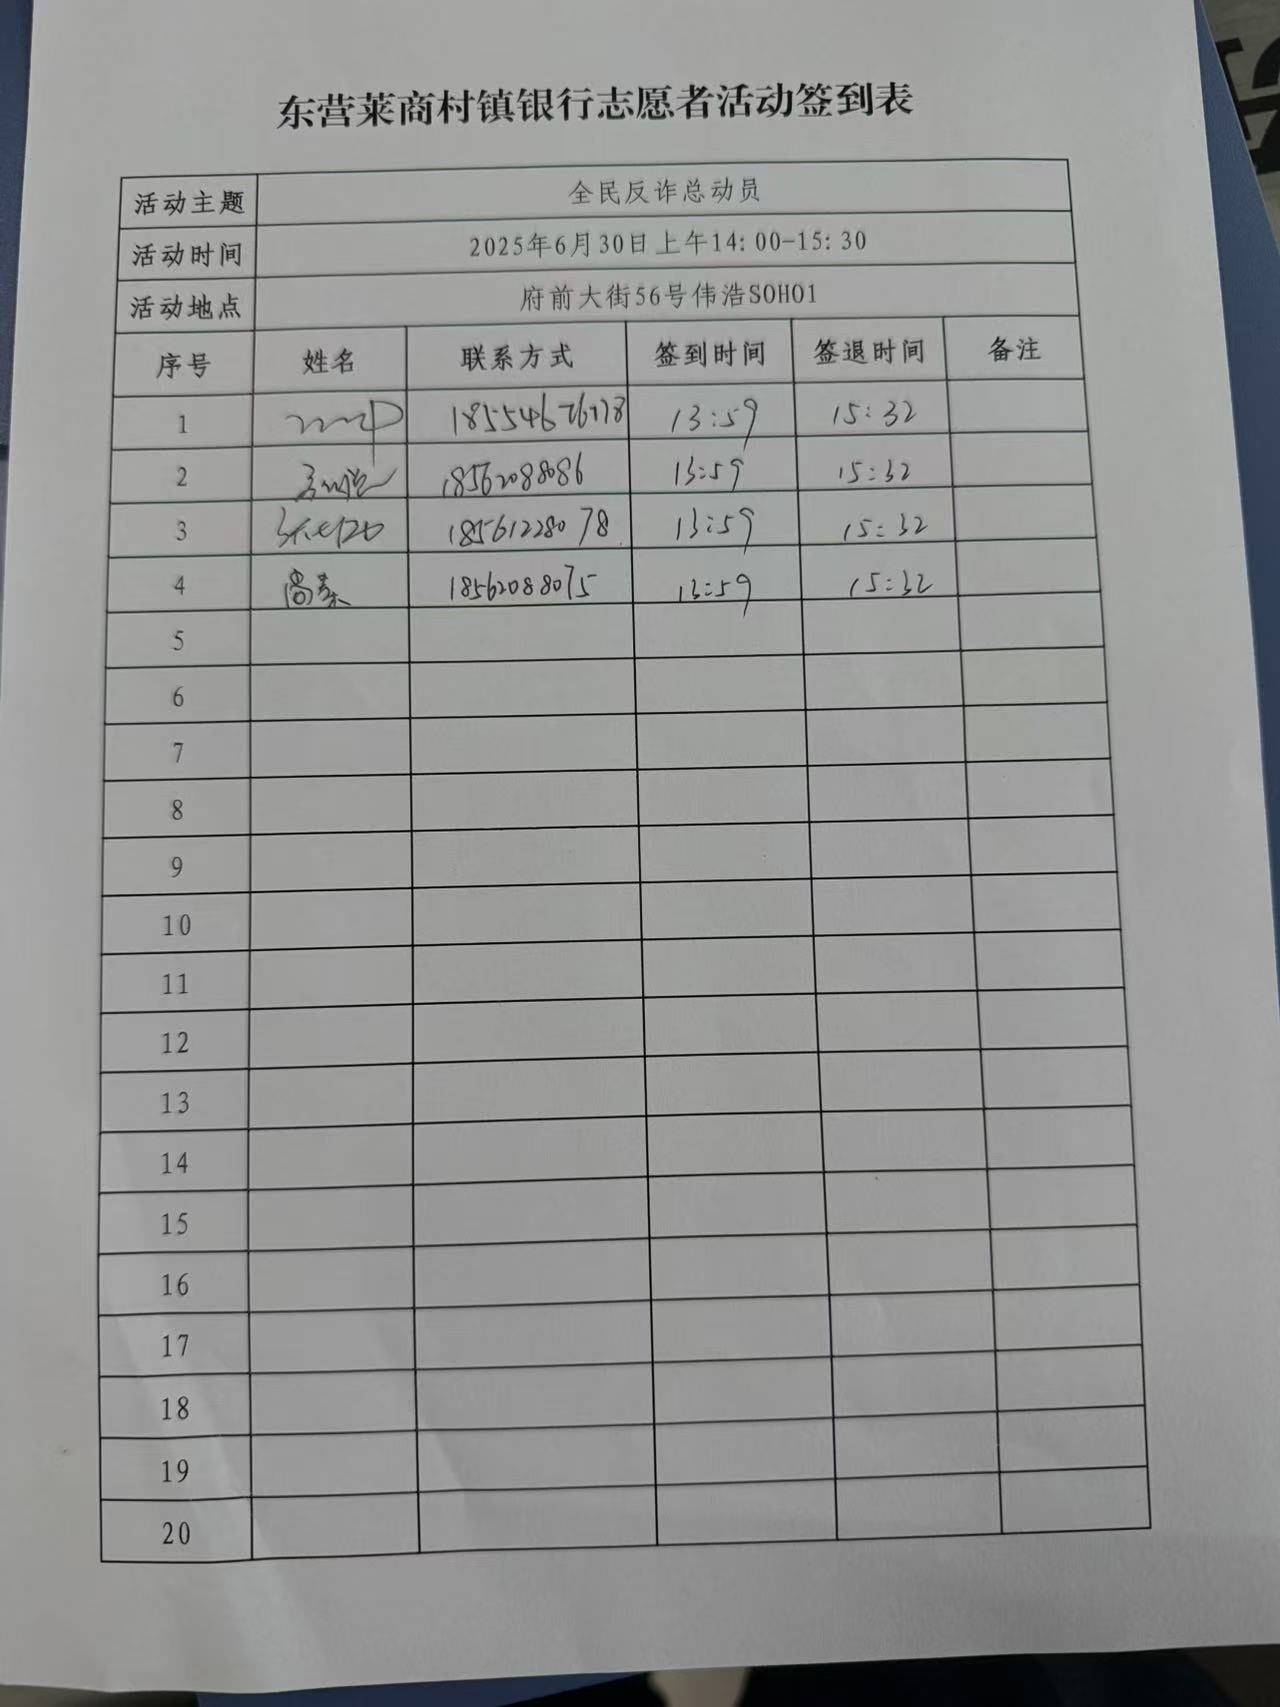 东营莱商村镇银行志愿者活动签到表
活动主题 全民反诈总动员
活动时间 2025年6月30日上午14:00-15:30
活动地点 府前大街56号伟浩SOHO1
序号 姓名 联系方式 签到时间 签退时间 备注
1 13:59 15:32
2 18562088086 13:59 15:32
3 18561228078 13:59 15:32
4 18562088075 13:59 15:32
5
6
7
8
9
10
11
12
13
14
15
16
17
18
19
20